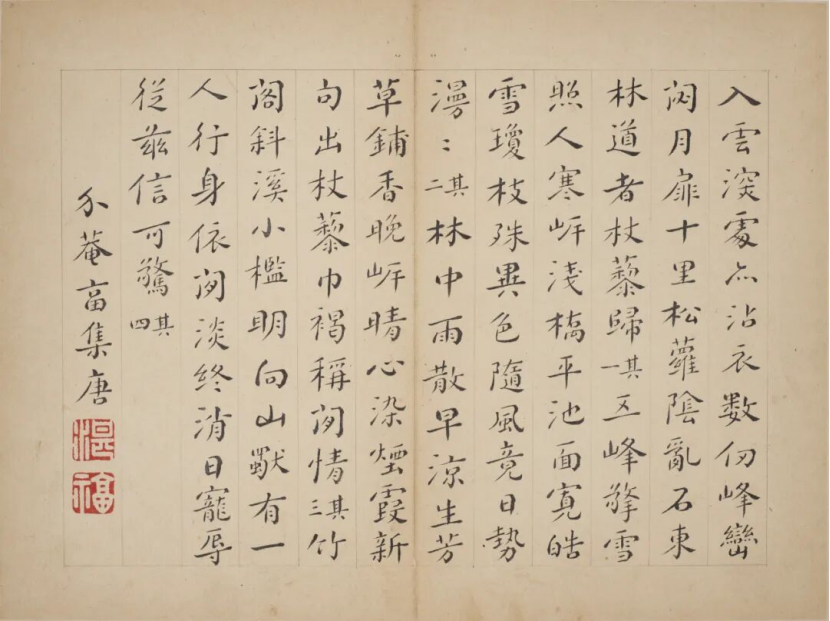 入雲深處亦沾衣數仞峰巒
閟月扉十里松蘿陰亂石東
林道者杖藜歸其一五峰擎雪
照人寒岸淺橋平池面寬皓
雪瓊枝殊異色隨風竟日勢
漫〻其二林中雨散早涼生芳
草鋪香晚岸晴心染煙霞新
句出杖藜巾褐稱閑情其三竹
閣斜溪小檻明向山猷有一
人行身依閑淡終消日寵辱
從茲信可驚其四
菴畐集唐
福